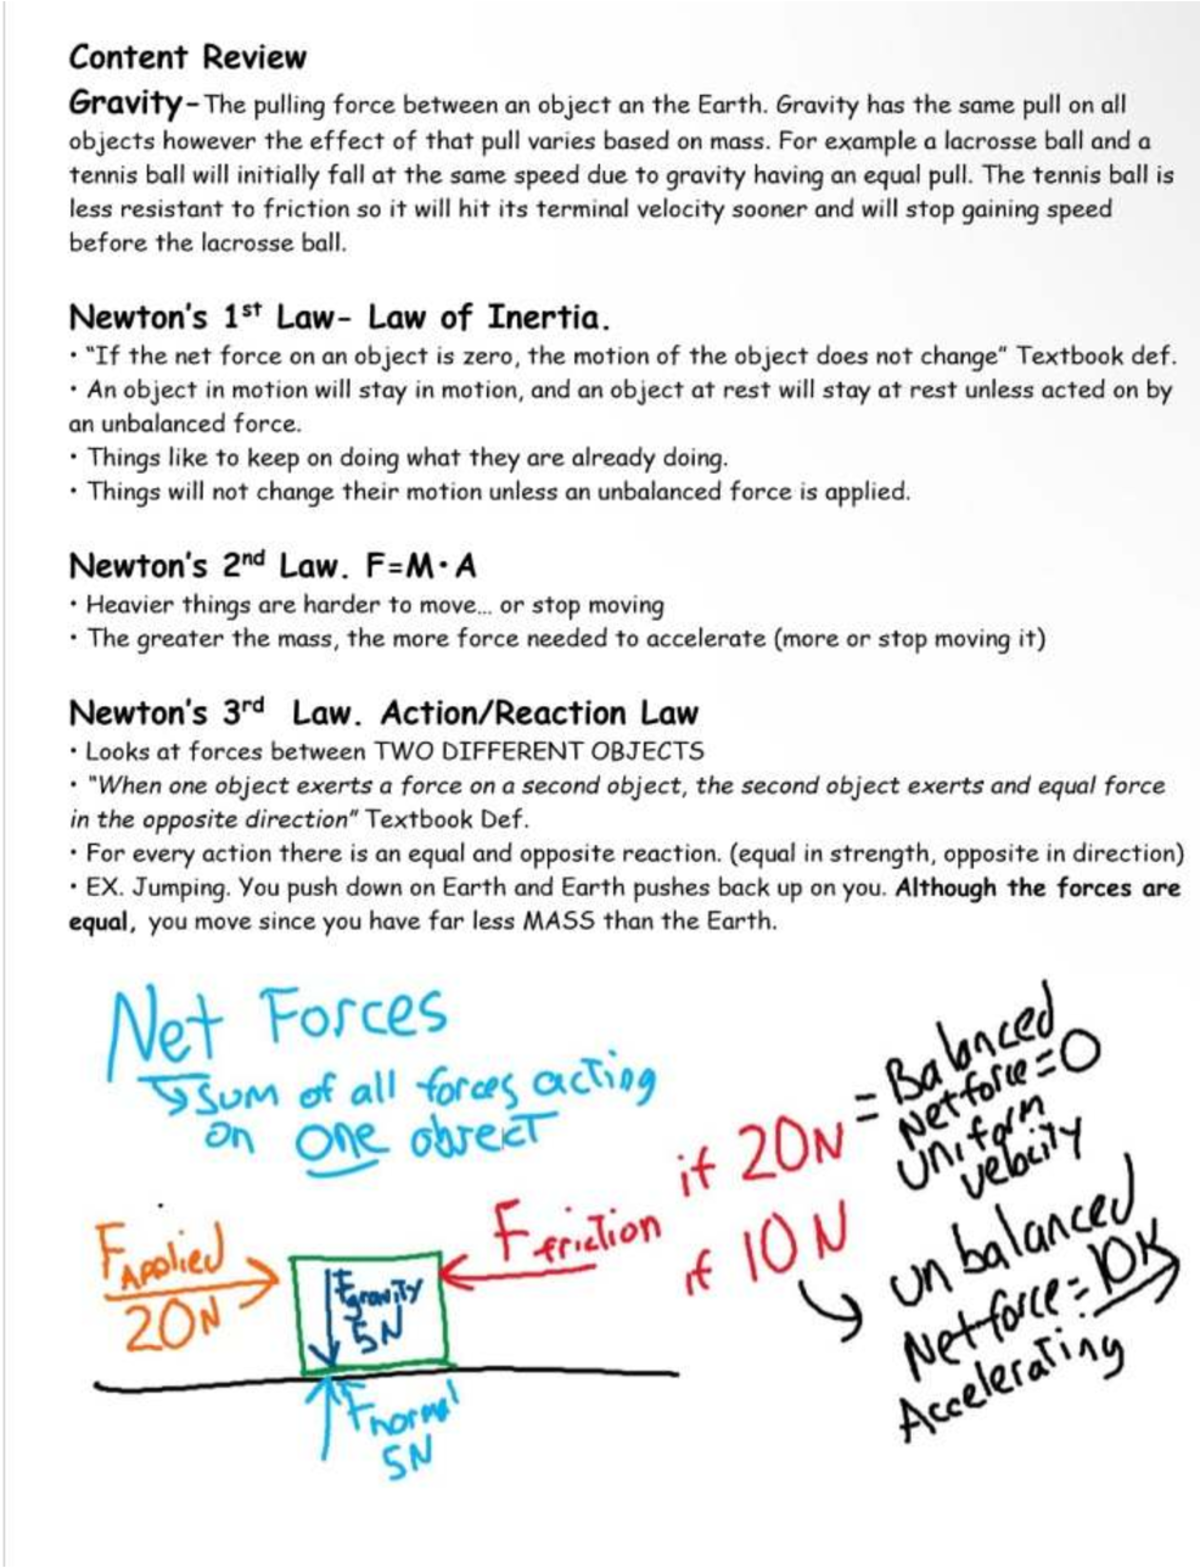 Content Review
Gravity- The pulling force between an object an the Earth. Gravity has the same pull on all
objects however the effect of that pull varies based on mass. For example a lacrosse ball and a
tennis ball will initially fall at the same speed due to gravity having an equal pull. The tennis ball is
less resistant to friction so it will hit its terminal velocity sooner and will stop gaining speed
before the lacrosse ball.
Newton's 1st Law- Law of Inertia.
• "If the net force on an object is zero, the motion of the object does not change" Textbook def.
• An object in motion will stay in motion, and an object at rest will stay at rest unless acted on by
an unbalanced force.
• Things like to keep on doing what they are already doing.
• Things will not change their motion unless an unbalanced force is applied.
Newton's 2nd Law. F=M•A
• Heavier things are harder to move... or stop moving
• The greater the mass, the more force needed to accelerate (more or stop moving it)
Newton's 3rd Law. Action/Reaction Law
• Looks at forces between TWO DIFFERENT OBJECTS
• "When one object exerts a force on a second object, the second object exerts and equal force
in the opposite direction" Textbook Def.
• For every action there is an equal and opposite reaction. (equal in strength, opposite in direction)
• EX. Jumping. You push down on Earth and Earth pushes back up on you. Although the forces are
equal, you move since you have far less MASS than the Earth.
Net Forces
↳ Sum of all forces acting
on one object
F Applied
20N
F gravity
5N
F normal
5N
F friction
if 20N
= Balanced
Net force = 0
Uniform
velocity
if 10N
unbalanced
Net force = 10N
Accelerating